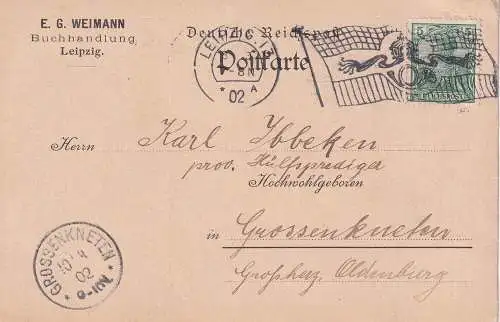 E. G. WEIMANN
Buchhandlung
Leipzig.
Deutsche Reichspost
Postkarte
LEIPZIG 13
8N
02
* A
5 5
Herrn Karl Ibbeken
prov. Hülfsprediger
Hochwohlgeboren
in Grossenkneten
Großherz. Oldenburg
GROSSENKNETEN
10 4
02
* 9-10V. *